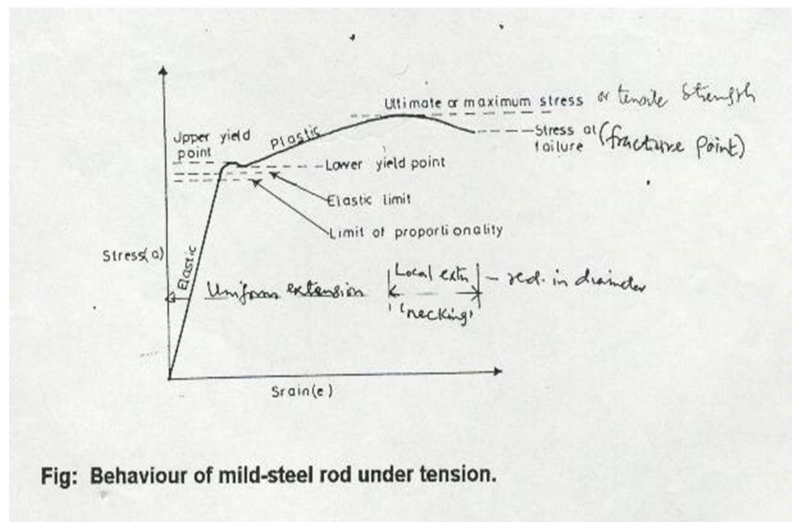 Ultimate or maximum stress or tensile strength
Upper yield
point
Plastic
Stress at
failure (fracture point)
Lower yield point
Elastic limit
Limit of proportionality
Stress(a)
Elastic
Uniform extension
Local extn - red. in diameter
'necking'
Srain(e)
Fig: Behaviour of mild-steel rod under tension.